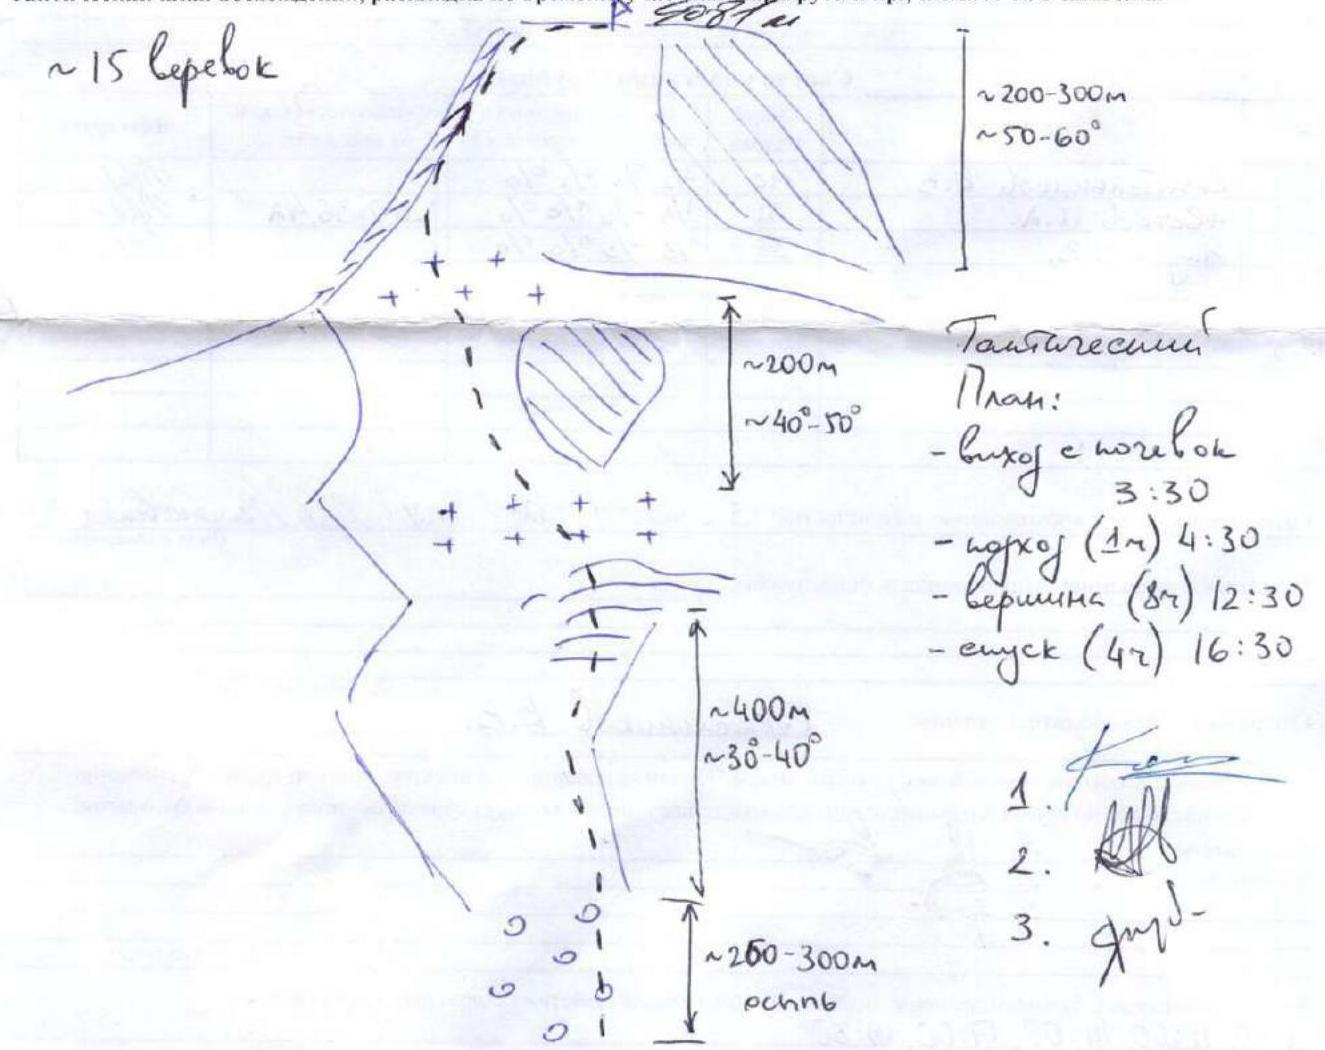 ~15 веревок
~200-300м
~50-60°
~200м
~40°-50°
Тактический
План:
- выход с ночевок
3:30
- подход (1ч) 4:30
- вершина (8ч) 12:30
- спуск (4ч) 16:30
~400м
~30°-40°
1.
2.
3.
~200-300м
осыпь